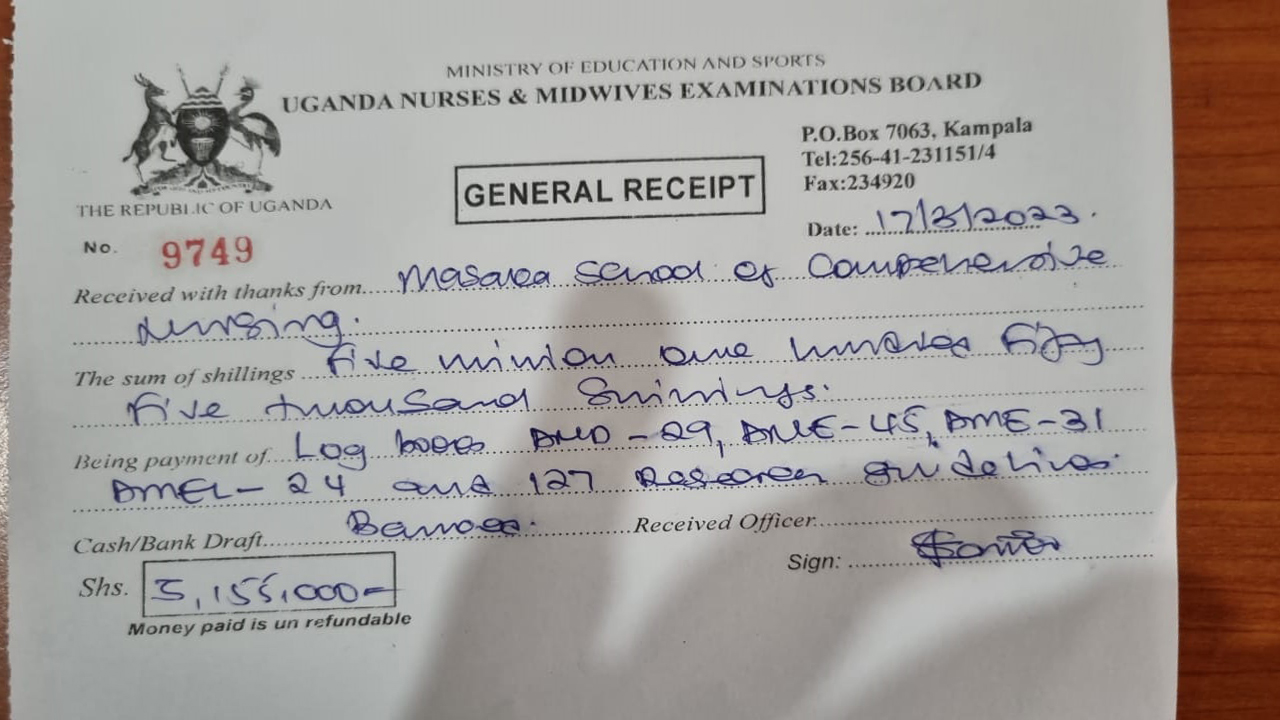 MINISTRY OF EDUCATION AND SPORTS
UGANDA NURSES & MIDWIVES EXAMINATIONS BOARD
P.O.Box 7063, Kampala
Tel:256-41-231151/4
Fax:234920
GENERAL RECEIPT
THE REPUBLIC OF UGANDA
Date: 17/3/2023.
No. 9749
Received with thanks from Masaka School of Comprehensive
Nursing.
The sum of shillings Five million one hundred fifty
five thousand Shillings.
Being payment of Log books DMD-29, DNE-45, DME-31
DMEL-24 and 127 Research guidelines.
Cash/Bank Draft Received Officer
Sign:
Shs. 5,155,000=
Money paid is un refundable